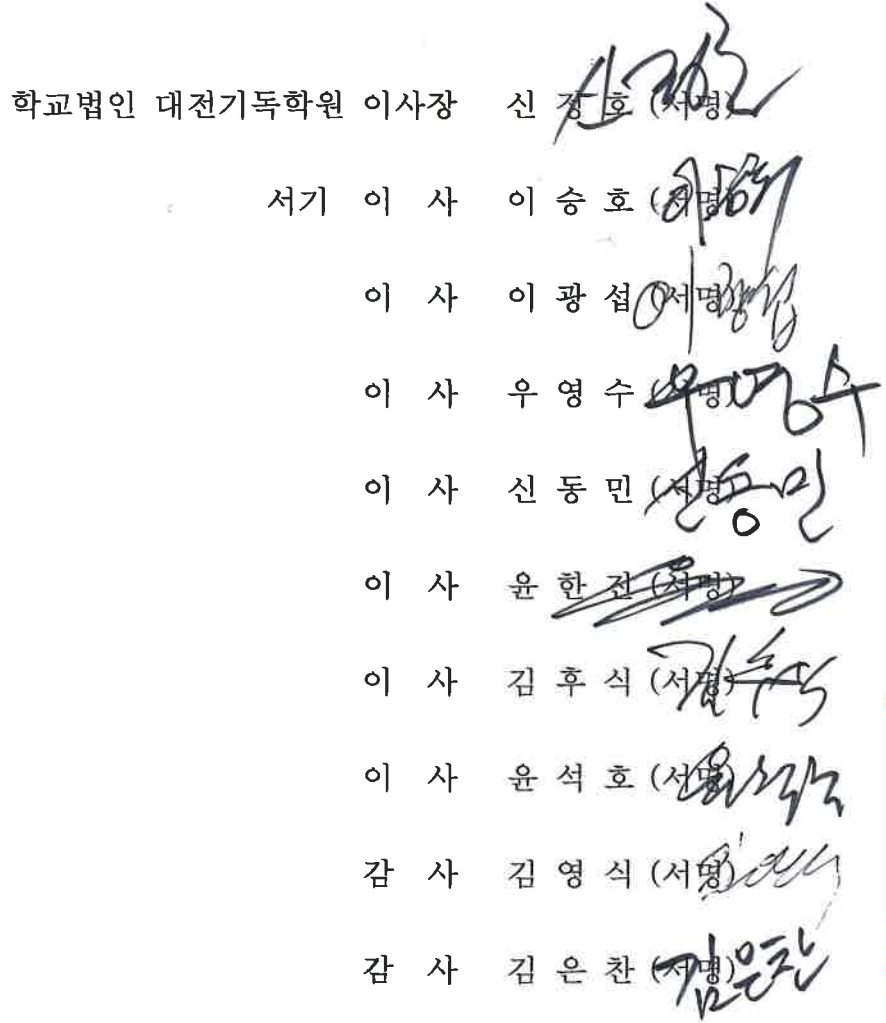 학교법인 대전기독학원 이사장 신 정 호 (서명)
서기 이 사 이 승 호 (서명)
이 사 이 광 섭 (서명)
이 사 우 영 수 (서명)
이 사 신 동 민 (서명)
이 사 윤 한 진 (서명)
이 사 김 후 식 (서명)
이 사 윤 석 호 (서명)
감 사 김 영 식 (서명)
감 사 김 은 찬 (서명)